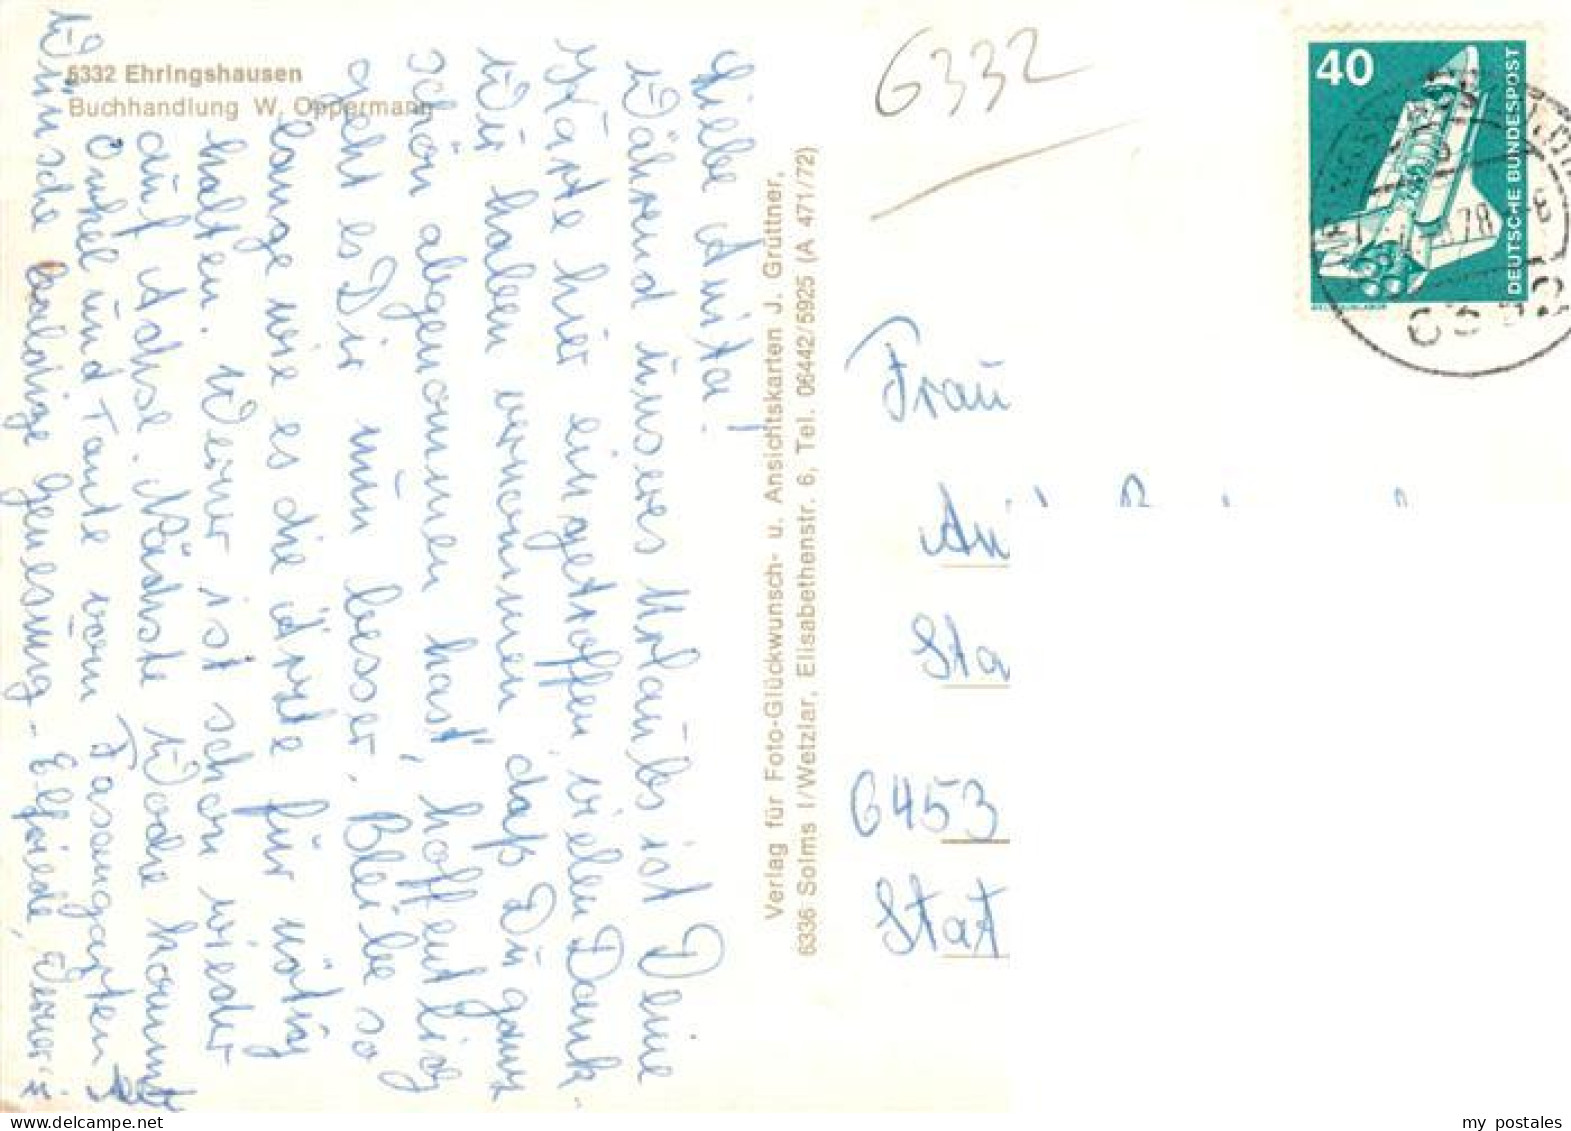 5332 Ehringshausen
Buchhandlung W. Oppermann
Liebe Anita!
Während unseres Urlaubes ist Deine
Karte hier eingetroffen vielen Dank.
Wir haben vernommen daß Du ganz
schön abgenommen hast, hoffentlich
geht es Dir nun besser. Bleibe so
lange wie es die Ärzte für nötig
halten. Werner ist schon wieder
auf Achse. Nächste Woche kommt
Onkel und Tante vom Fasengarten
Wünsche baldige Genesung - Elfriede, Werner
Verlag für Foto-Glückwunsch- u. Ansichtskarten J. Grüttner,
6336 Solms I/Wetzlar, Elisabethenstr. 6, Tel. 06442/5925 (A 471/72)
6332
40
DEUTSCHE BUNDESPOST
Frau
Sta
6453
Stat
my postales